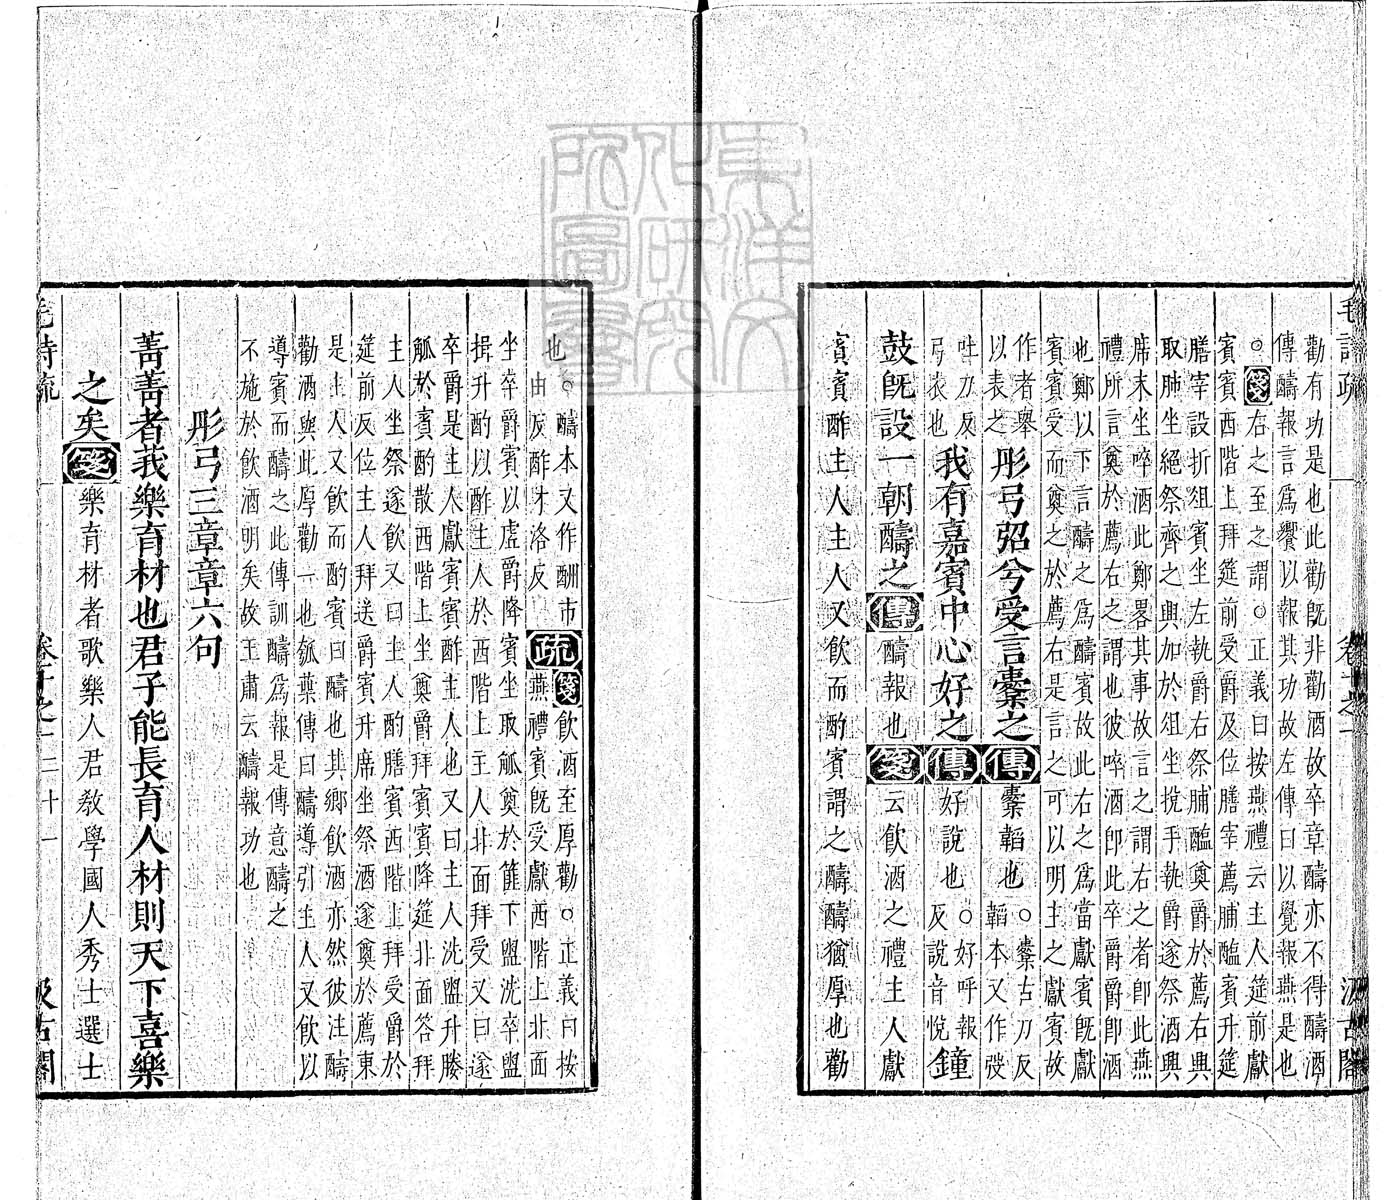 毛詩疏 卷十之一 汲古閣
勸有功是也此勸旣非勸酒故卒章醻亦不得醻酒
傳醻報言爲饗以報其功故左傳曰以覺報燕是也
○箋右之至之謂○正義曰按燕禮云主人筵前獻
賓賓西階上拜筵前受爵及位膳宰薦脯醢賓升筵
膳宰設折俎賓坐左執爵右祭脯醢奠爵於薦右興
取肺坐絕祭嚌之興加於俎坐挩手執爵遂祭酒興
席末坐啐酒此鄭畧其事故言之謂右之者卽此燕
禮所言奠於薦右之謂也彼啐酒卽此卒爵爵卽酒
也鄭以下言醻之爲醻賓故此右之爲當獻賓旣獻
賓賓受而奠之於薦右是言之可以明主之獻賓故
作者舉
以表之
彤弓弨兮受言櫜之傳櫜韜也○櫜古刀反
韜本又作弢
吐刀反
弓衣也
我有嘉賓中心好之傳好說也○好呼報
反說音悅
鐘
鼓旣設一朝醻之傳醻報也箋云飲酒之禮主人獻
賓賓酢主人主人又飲而酌賓謂之醻醻猶厚也勸
也○醻本又作酬市
由反酢才洛反
疏箋飲酒至厚勸○正義曰按
燕禮賓旣受獻西階上北面
坐卒爵賓以虛爵降賓坐取觚奠於篚下盥洗卒盥
揖升酌以酢主人於西階上主人北面拜受又曰遂
卒爵是主人獻賓賓酢主人也又曰主人洗盥升媵
觚於賓酌散西階上坐奠爵拜賓賓降筵北面答拜
主人坐祭遂飲又曰主人酌膳賓西階上拜受爵於
筵前反位主人拜送爵賓升席坐祭酒遂奠於薦東
是主人又飲而酌賓曰醻也其鄉飲酒亦然彼注醻
勸酒與此厚勸一也瓠葉傳曰醻導引主人又飲以
導賓而醻之此傳訓醻爲報是傳意醻之
不施於飲酒明矣故王肅云醻報功也
彤弓三章章六句
菁菁者莪樂育材也君子能長育人材則天下喜樂
之矣箋樂育材者歌樂人君敎學國人秀士選士
毛詩疏 卷十之一 二十一 汲古閣
東洋文化研究所圖書